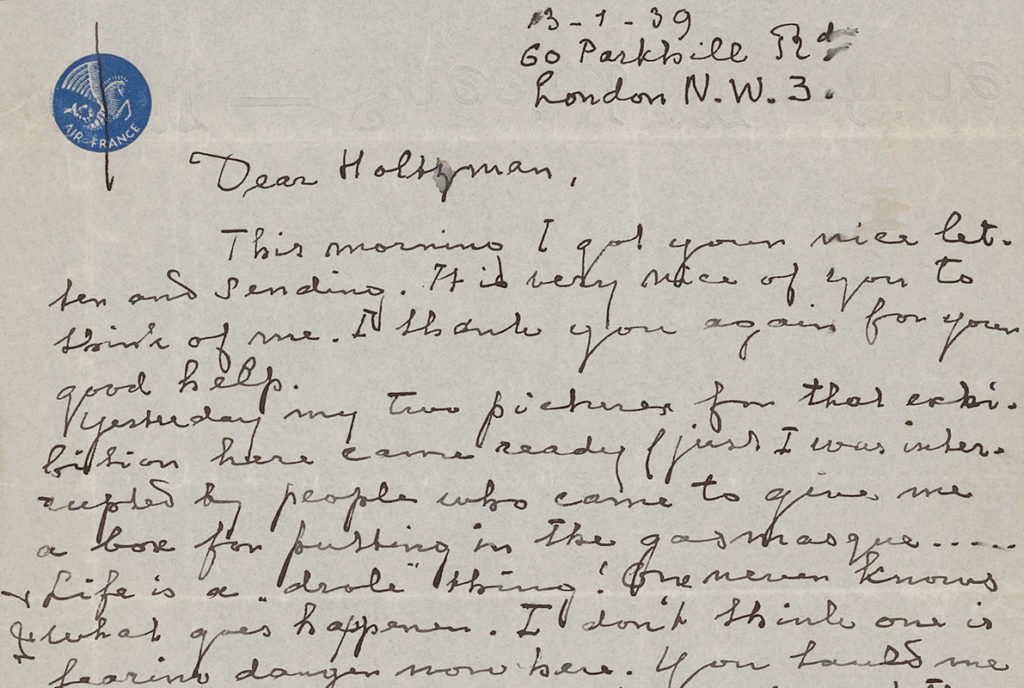 13-1-39
60 Parkhill Rd
London N.W.3.
AIR FRANCE
Dear Holtzman,
This morning I got your nice let-
ter and sending. It is very nice of you to
think of me. I thank you again for your
good help.
Yesterday my two pictures for that exhi-
bition here came ready (just I was inter-
rupted by people who came to give me
a box for putting in the gasmasque.....
Life is a „drole" thing! One never knows
what goes happenen. I don't think one is
fearing danger now here. You told me